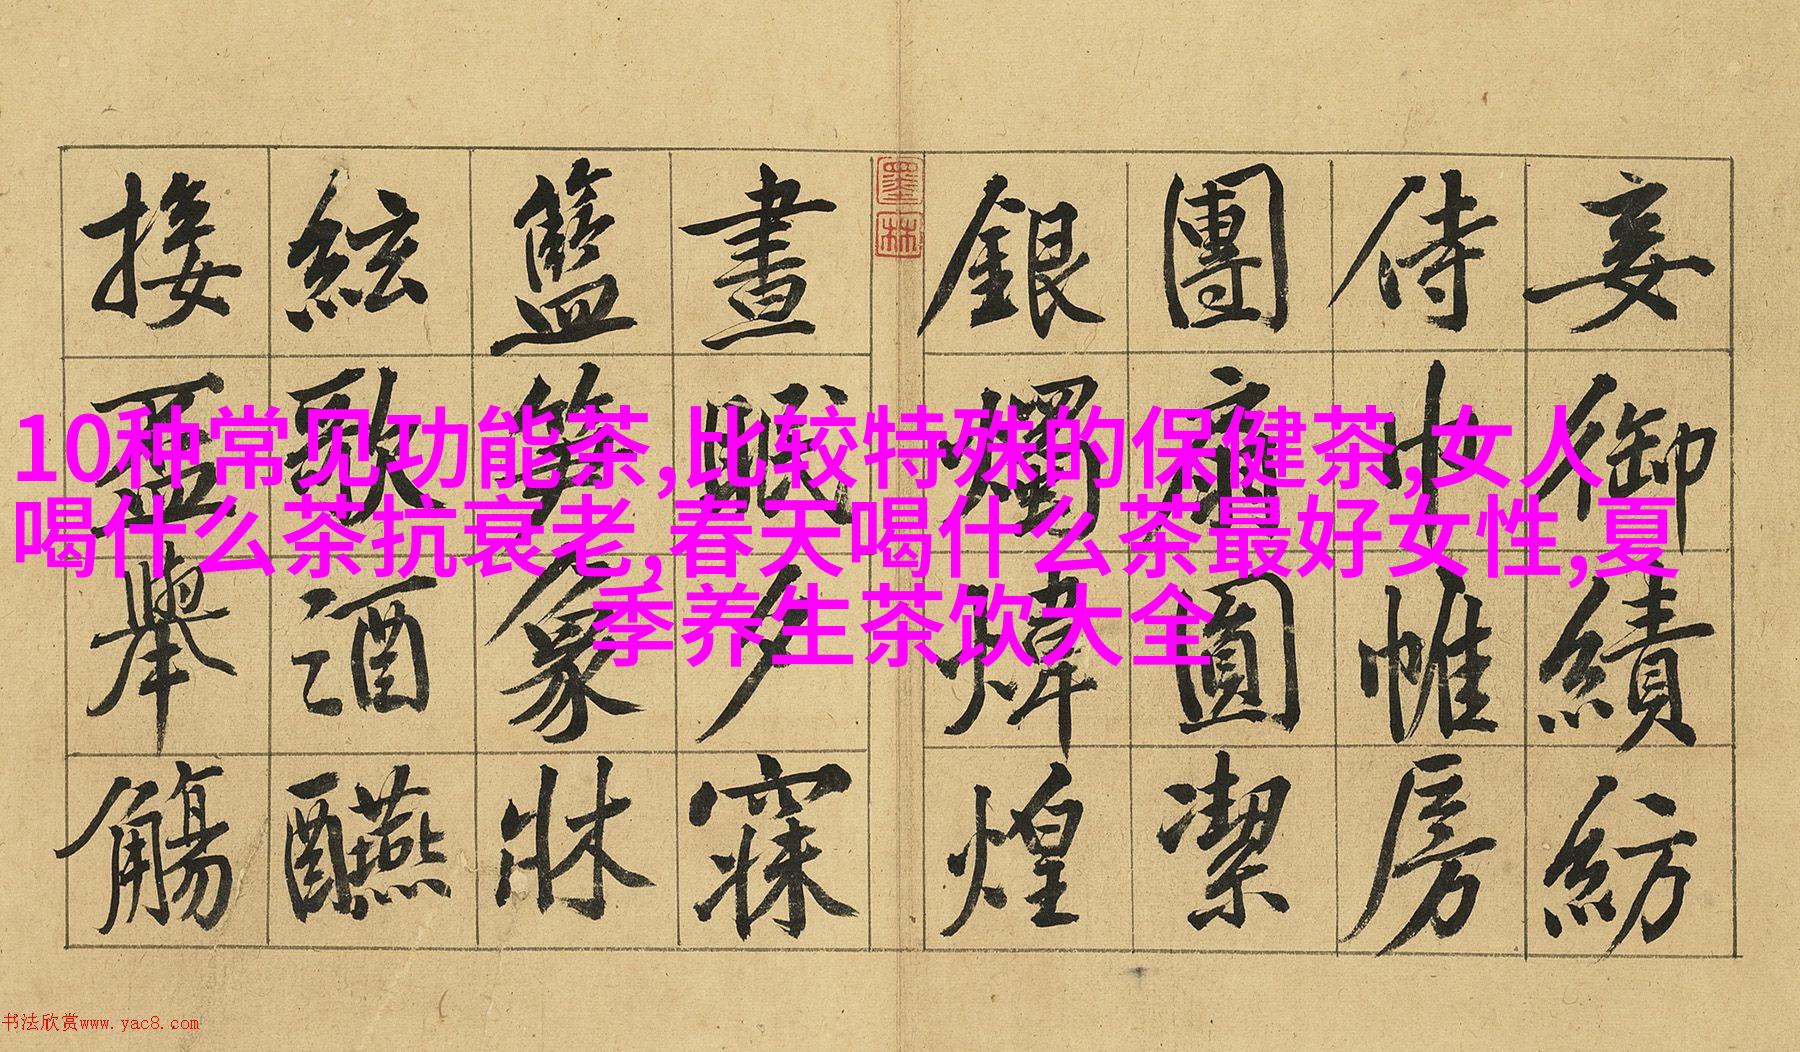 10种常见功能茶,比较特殊的保健茶,女人
喝什么茶抗衰老,春天喝什么茶最好女性,夏
季养生茶饮大全
妾御績紡
侍巾帷房
團扇圓潔
銀燭煒煌
墨林
晝眠夕寐
籃笋象牀
絃歌酒醼
接盃舉觴
书法欣赏www.yac8.com